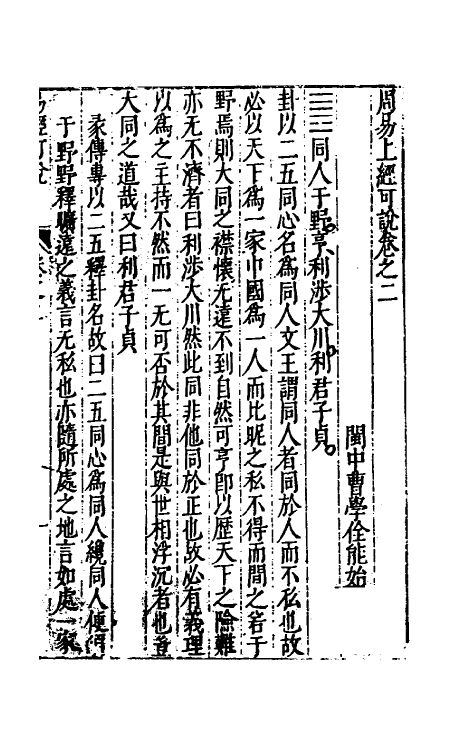 周易上經可說卷之二
閩中曹學佺能始
䷌同人于野亨利涉大川利君子貞
卦以二五同心名為同人文王謂同人者同於人而不私也故
必以天下為一家中國為一人而比昵之私不得而間之若于
野焉則大同之襟懷无遠不到自然可亨即以歷天下之險難
亦无不濟者曰利涉大川然此同非他同於正也故必有義理
以為之主持不然而一无可否於其間是與世相浮沉者也豈
大同之道哉又曰利君子貞
彖傳專以二五釋卦名故曰二五同心為同人纔同人便
于野野釋曠遠之義言无私也亦隨所處之地言如處一家
易經可說